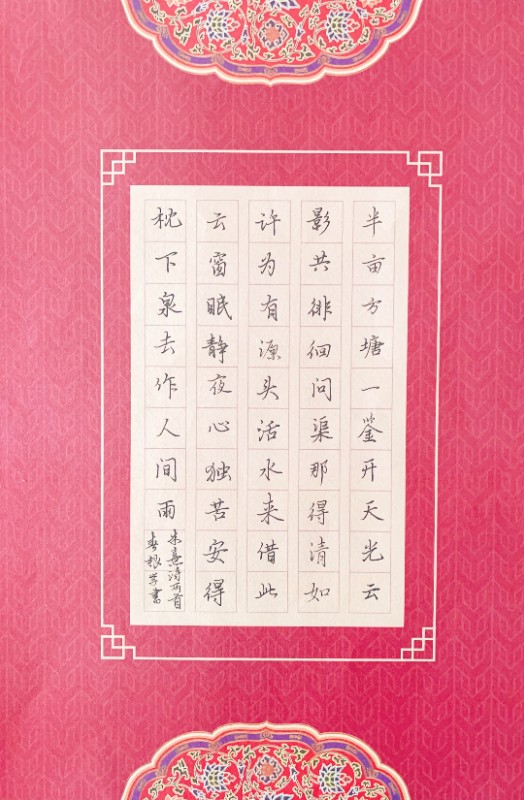 半亩方塘一鉴开天光云
影共徘徊问渠那得清如
许为有源头活水来借此
云窗眠静夜心独苦安得
枕下泉去作人间雨
朱熹诗两首
春根学书